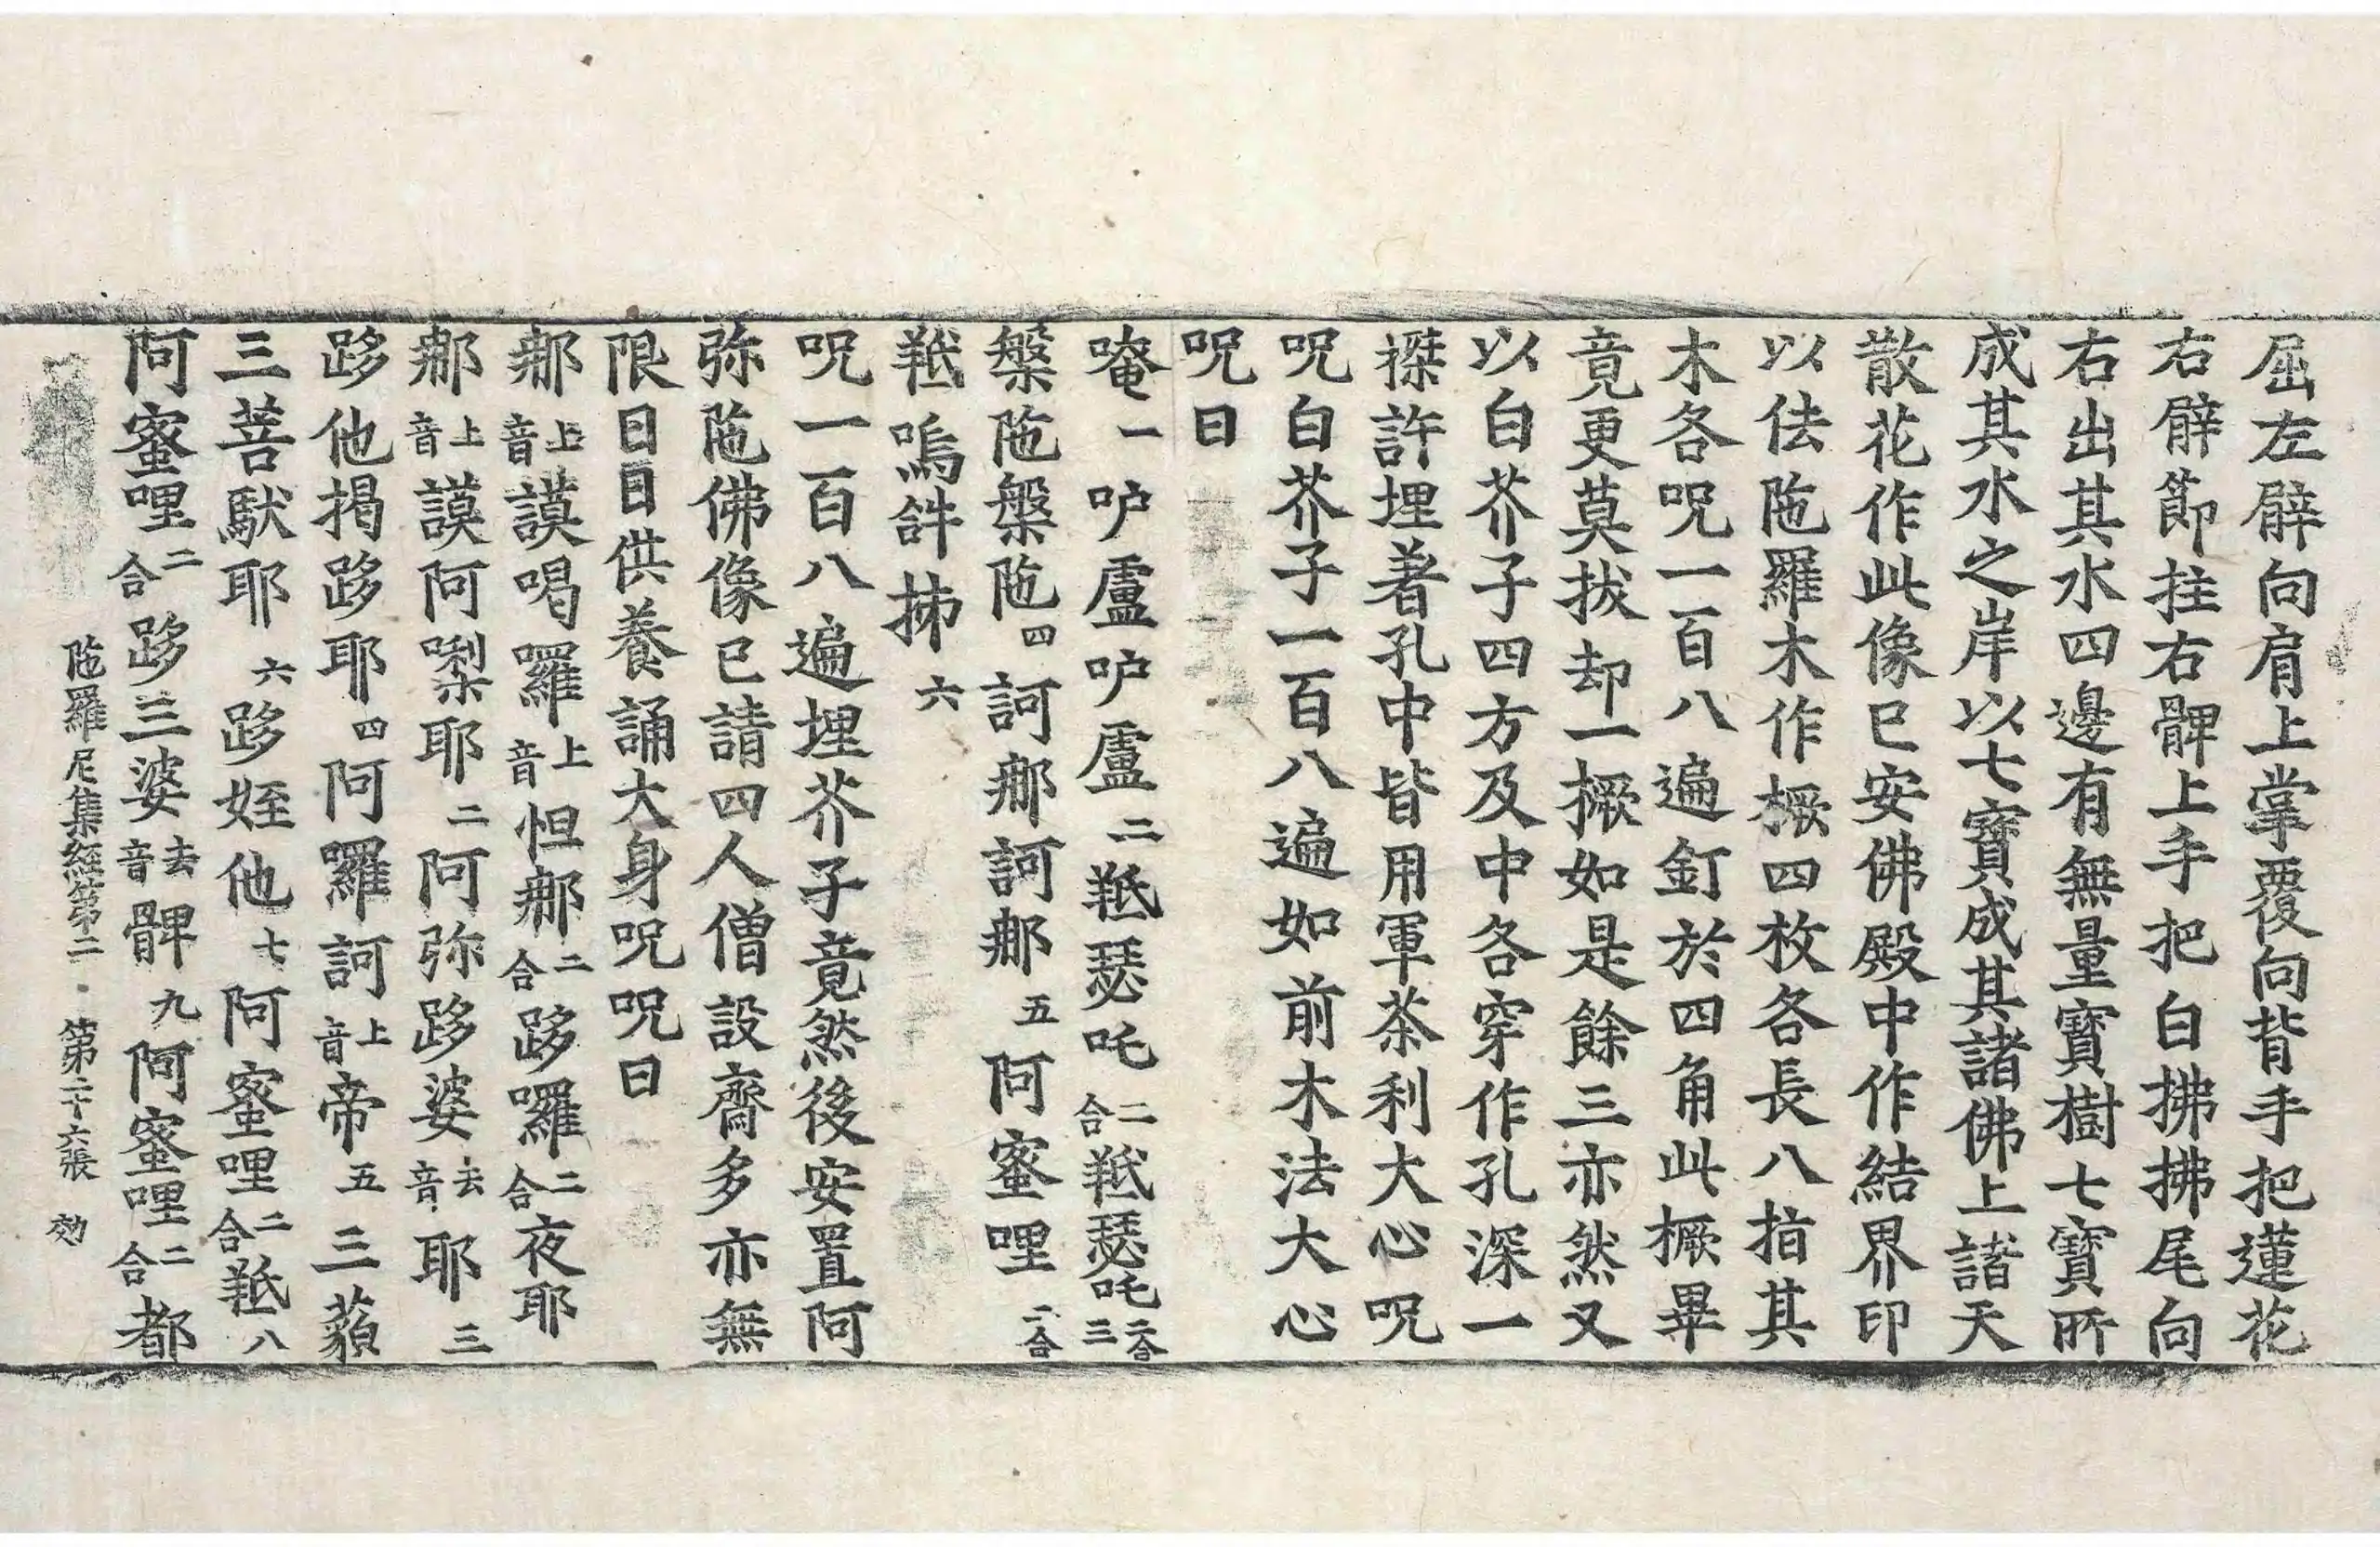 屈左臂向肩上掌覆向背手把蓮花
右臂節拄右髀上手把白拂拂尾向
右出其水四邊有無量寶樹七寶所
成其水之岸以七寶成其諸佛上諸天
散花作此像已安佛殿中作結界印
以佉陁羅木作橛四枚各長八指其
木各呪一百八遍釘於四角此橛畢
竟更莫拔却一橛如是餘三亦然又
以白芥子四方及中各穿作孔深一
磔許埋著孔中皆用軍茶利大心呪
呪白芥子一百八遍如前木法大心
呪曰
唵一 呼盧呼盧二 羝瑟吒二合羝瑟吒二合三
槃陁槃陁四 訶那訶那五 阿蜜哩二合
羝嗚𤙖抪六
呪一百八遍埋芥子竟然後安置阿
弥陁佛像已請四人僧設齋多亦無
限日日供養誦大身呪呪曰
那上音謨喝囉上音怛那二合跢囉二合夜耶
那上音謨阿㗚耶二阿弥跢婆去音耶三
跢他揭跢耶四阿囉訶上音帝五三藐
三菩馱耶六跢姪他七阿蜜哩二合羝八
阿蜜哩二合跢三婆去音髀九阿蜜哩二合都
陁羅尼集經第二 第二十六張 効